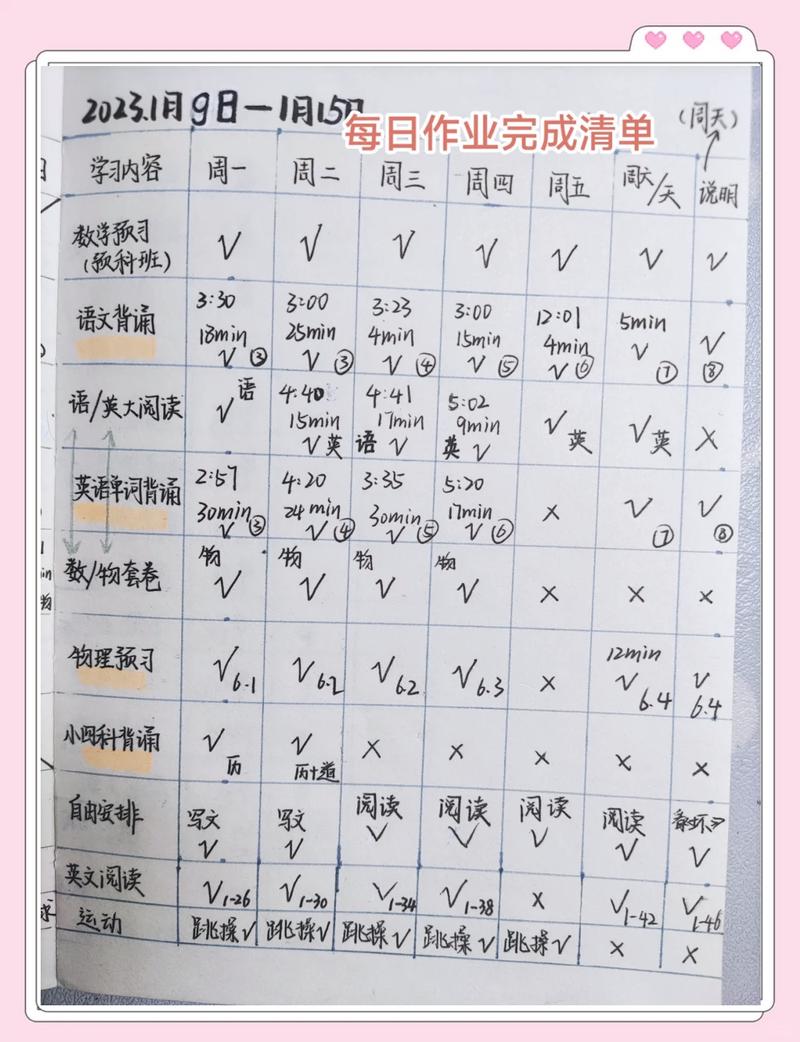 2023.1月9日—1月15日
每日作业完成清单
(周天)
学习内容 周一 周二 周三 周四 周五 周六/天 说明
数学预习 √ √ √ √ √ √ √
(预科班)
语文背诵 3:30 3:00 3:23 3:00 12:01 5min √
18min 25min 4min 15min 4min √
√③ √③ √④ √⑤ √⑥ ⑦ ⑧
语/英大阅读 √语 4:40 4:41 5:02 √英 √英 ×
15min 17min 9min
√英 语√ 英√
英语单词背诵 2:57 4:20 3:35 5:20 × √ √
30min 24min 30min 17min
√③ √④ √⑤ √⑥ ⑦ ⑧
数/物套卷 物 物 物 物
√ √ √ √ × × ×
物理预习 12min
√6.1 √6.2 √6.2 √6.3 × √6.4 √6.4
小四科背诵 √ √ × × × × ×
历 历十道
自由安排 写文 写文 阅读 阅读 阅读 阅读
√ √ √ √ √ √ √
英文阅读 √1-26 √1-30 √1-34 √1-38 × √1-42 √1-46
运动 跳操√ 跳操√ 跳操√ 跳操√ 跳操√ × ×
in
物
球